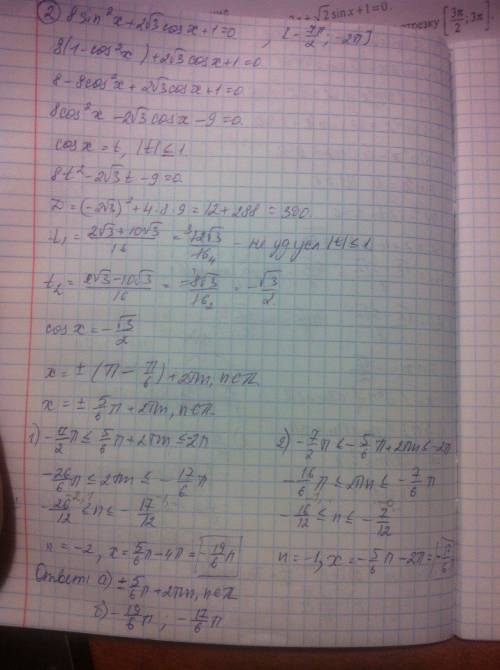 √2 sinx+1=0.
отрезку [3π/2; 3π]
② 8sin²x+2√3cosx+1=0, [-7π/2; -2π]
8(1-cos²x)+2√3cosx+1=0
8-8cos²x+2√3cosx+1=0
8cos²x-2√3cosx-9=0.
cosx=t, |t|≤1
8t²-2√3t-9=0.
D=(-2√3)²+4·8·9=12+288=300.
t₁=(2√3+10√3)/16=12√3/16 - не уд усл |t|≤1
t₂=(2√3-10√3)/16=-8√3/16=-√3/2
cosx=-√3/2
x=±(π-π/6)+2πn, n∈π.
x=±5/6π+2πn, n∈π.
1) -7/2π≤5/6π+2πn≤2π
-26/6π≤2πn≤-17/6π
-26/12≤n≤-17/12
n=-2, x=5/6π-4π=-19/6π
2) -7/2π≤-5/6π+2πn≤-2π
-16/6π≤2πn≤-7/6π
-16/12≤n≤-7/12
n=-1, x=-5/6π-2π=-17/6π
Ответ: а) ±5/6π+2πn, n∈π
б) -19/6π, -17/6π